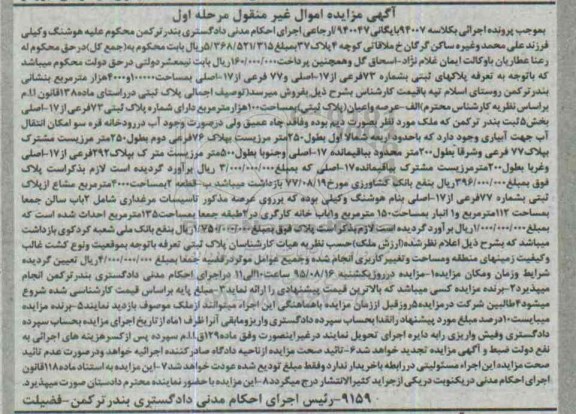 آگهی مزایده اموال غیر منقول مرحله اول
بموجب پرونده اجرائی بکلاسه ۹۴۰۰۷بایگانی۹۴۰۰۴۷ارجاعی اجرای احکام مدنی دادگستری بندرترکمن محکوم علیه هوشنگ وکیلی
فرزند علی محمد وغیره ساکن گرگان خ ملاقاتی کوچه ۴پلاک۳۷بمبلغ۵/۳۶۸/۵۲۱/۳۱۵ریال بابت محکوم به(جمع کل)درحق محکوم له
رعنا عطاریان باوکالت ایمان غلام نژاد-اسحاق گل وهمچنین پرداخت۱۶۰/۰۰۰/۰۰۰ریال بابت نیمعشر دولتی درحق دولت محکوم میباشد
که باتوجه به تعرفه پلاکهای ثبتی بشماره ۷۳فرعی از۱۷-اصلی و۷۷ فرعی از۱۷-اصلی بمساحت۱۰۰۰۰و۴۰۰۰هزار مترمربع بنشانی
بندرترکمن روستای اسلام تپه باقیمت کارشناس بشرح ذیل بفروش میرسد(توصیف اجمالی پلاک ثبتی درراستای ماده۱۳۸قانون ا.ا.م
براساس نظریه کارشناس محترم)الف-عرصه واعیان(پلاک ثبتی)بمساحت۱۰هزارمترمربع دارای شماره پلاک ثبتی۷۳فرعی از۱۷-اصلی
بخش۵ثبت بندر ترکمن که ملک مورد نظر بصورت دیم بوده وفاقد چاه عمیق ولی درصورت وجود آب دررودخانه قره سو امکان انتقال
آب جهت آبیاری وجود دارد که باحدود اربعه شمالا اول بطول۲۵۰متر مرزیست بپلاک۷۶فرعی دوم بطول۲۵۰متر مرزیست مشترک
بپلاک۷۷ فرعی وشرقا بطول۲۰۰متر محدود بباقیمانده ۱۷-اصلی وجنوبا بطول۵۰۰متر مرزیست مترک بپلاک۲۹۲فرعی از۱۷-اصلی
وغربا بطول۲۰۰مترمرزیست مشترک بباقیمانده۱۷-اصلی که بمبلغ۳/۰۰۰/۰۰۰/۰۰۰ ریال برآورد گردیده است لازم بذکراست پلاک
فوق بمبلغ۳۹۶/۰۰۰/۰۰۰ریال بنفع بانک کشاورزی مورخ۷۷/۰۸/۱۹بازداشت میباشد ب-قطعه ۲بمساحت۴۰۰۰مترمربع مشاع ازپلاک
ثبتی بشماره ۷۷فرعی از۱۷-اصلی بنام هوشنگ وکیلی بوده که برروی عرصه مذکور تاسیسات مرغداری شامل ۲باب سالن جمعا
بمساحت ۱۱۲مترمربع و۱ انبار بمساحت۱۵۰ مترمربع و۱باب خانه کارگری در۲طبقه جمعا بمساحت۱۳۵مترمربع احداث شده است که
بمبلغ۱/۰۰۰/۰۰۰/۰۰۰ریال برآورد گردیده است لازم بذکراست پلاک فوق بمبلغ۱/۷۵۰/۰۰۰/۰۰۰ریال بنفع بانک ملی شعبه کردکوی بازداشت
میباشد که بشرح ذیل اعلام نظر شده(ارزش ملک)حسب نظریه هیات کارشناسان پلاک ثبتی تعرفه باتوجه بموقعیت ونوع کشت غالب
وکیفیت زمینهای منطقه ومساحت وتغییرکاربری انجام شده وجمیع عوامل موثردرقضیه جمعا بمبلغ ۴/۰۰۰/۰۰۰/۰۰۰ریال تعیین گردیده
شرایط وزمان ومکان مزایده۱-مزایده درروزیکشنبه ۹۵/۰۸/۱۶ ساعت۱۰الی۱۱ دراجرای احکام مدنی دادگستری بندرترکمن انجام
میپذیرد۲-برنده مزایده کسی میباشد که بالاترین قیمت پیشنهادی را ارائه نماید۳-مبلغ پایه براساس قیمت کارشناسی شده شروع
میشود۴طالبین شرکت درمزایده۵روزقبل اززمان مزایده باهماهنگی این اجراء میتوانند ازملک موصوف بازدید نمایند۵-برنده مزایده
میبایست۱۰درصد مبلغ مورد پیشنهاد رانقدا بحساب سپرده دادگستری واریزومابقی آنرا ظرف ۱ماه از تاریخ اجرای مزایده بحساب سپرده
دادگستری وفیش واریزی رابه دایره اجرای تحویل نمایند درغیراینصورت وفق ماده۱۲۹ق.ا.ا.م سپرده پس ازکسرهزینه های اجرائی به
نفع دولت ضبط و آگهی مزایده تجدید خواهد شد۶-تائید صحت مزایده ازناحیه دادگاه صادرکننده اجرائیه خواهد ودرصورت عدم تائید
صحت مزایده:این اجراء مسئولیتی دررابطه باخریدار ندارد وفقط مبلغ تودیع شده عودت خواهد شد۷-این مزایده به استناد ماده۱۱۸قانون
اجرای احکام مدنی دریکنوبت دریکی ازجراید کثیرالانتشار درج میگردد۸-این مزایده باحضور نماینده محترم دادستان صورت میپذیرد.
۹۱۵۹۰-رئیس اجرای احکام مدنی دادگستری بندر ترکمن-فضیلت